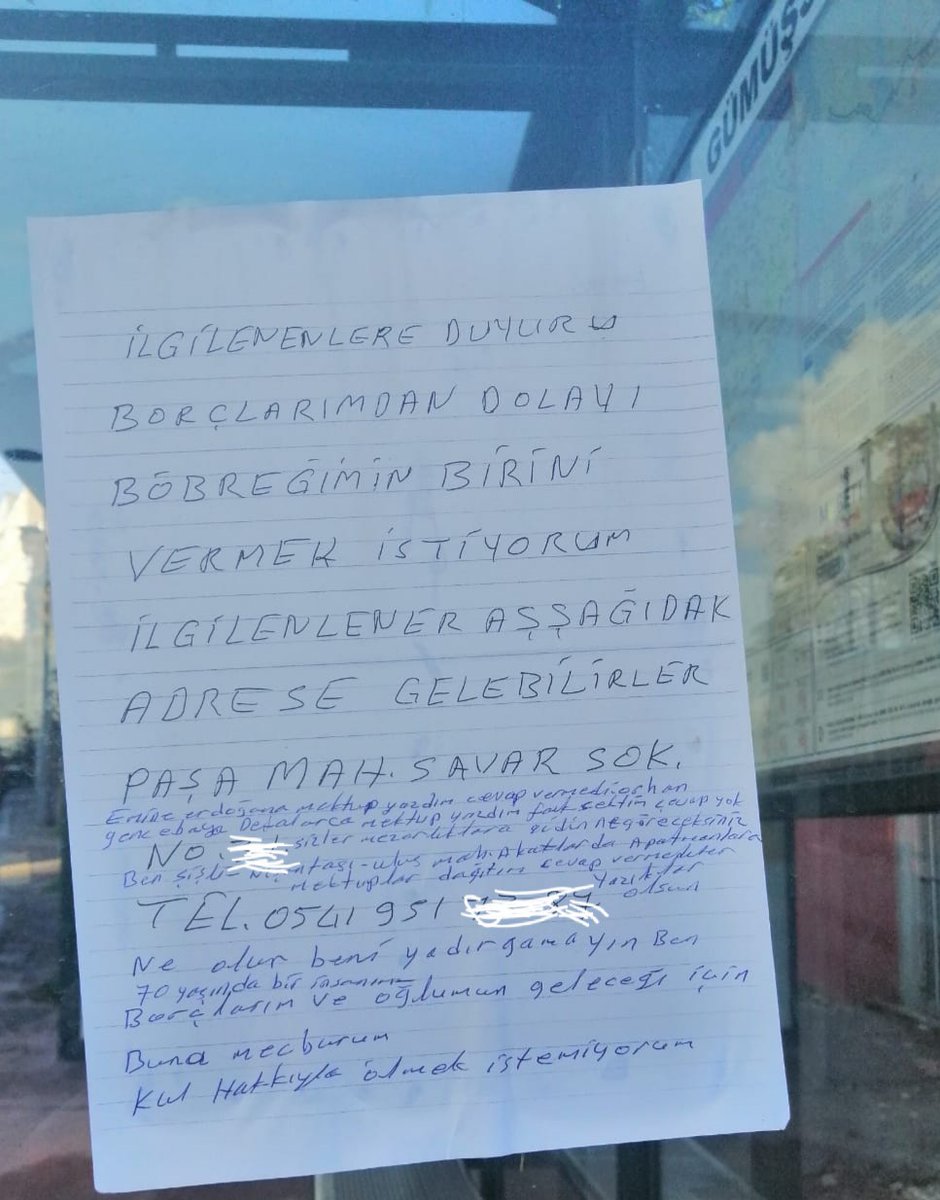 GÜMÜŞS
İLGİLENENLERE DUYURU
BORÇLARIMDAN DOLAYI
BÖBREĞİMİN BİRİNİ
VERMEK İSTİYORUM
İLGİLENLENER AŞŞAĞIDAK
ADRESE GELEBİLİRLER
PAŞA MAH. SAVAR SOK.
Emine erdoğana mektup yazdım cevap vermedi orhan
gencebaya Defalarca mektup yazdım fax çektim cevap yok
NO. sizler mezarlıktara gidin ne göreceksiniz
Ben şişli ntaşı-uluş mah. Akatlarda Apatmanlara
mektuplar dağıtım cevap vermediler
yazıklar
TEL. 0541 951 olsun
Ne olur beni yadırgamayın Ben
70 yaşında bir insanım
Borçlarım ve oğlumun geleceği için
Buna mecburum
Kul Hakkıyla ölmek istemiyorum